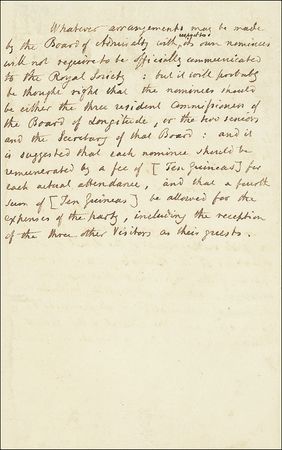 Whatever arrangements may be made
by the Board of Admiralty with respect to its own nominees
will not require to be officially communicated
to the Royal Society : but it will probably
be thought right that the nominees should
be either the three resident Commissioners of
the Board of Longitude, or the two seniors
and the Secretary of that Board : and it
is suggested that each nominee should be
remunerated by a fee of [Ten Guineas] for
each actual attendance, and that a fourth
sum of [Ten Guineas] be allowed for the
expenses of the party, including the reception
of the three other Visitors as their guests.